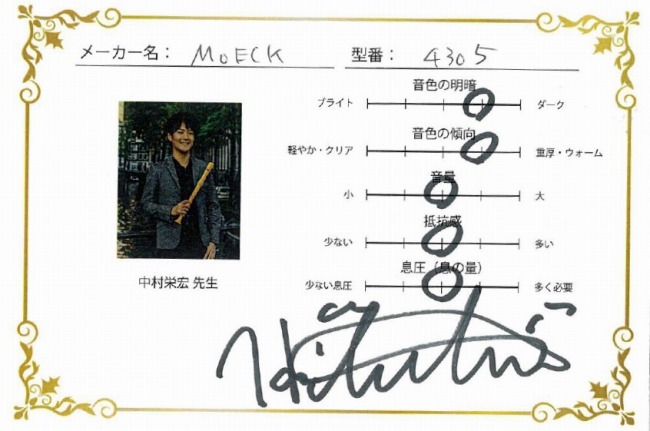 メーカー名： MOECK 型番： 4305
音色の明暗
ブライト ダーク
音色の傾向
軽やか・クリア 重厚・ウォーム
音量
小 大
抵抗感
少ない 多い
息圧（息の量）
少ない息圧 多く必要
中村栄宏 先生